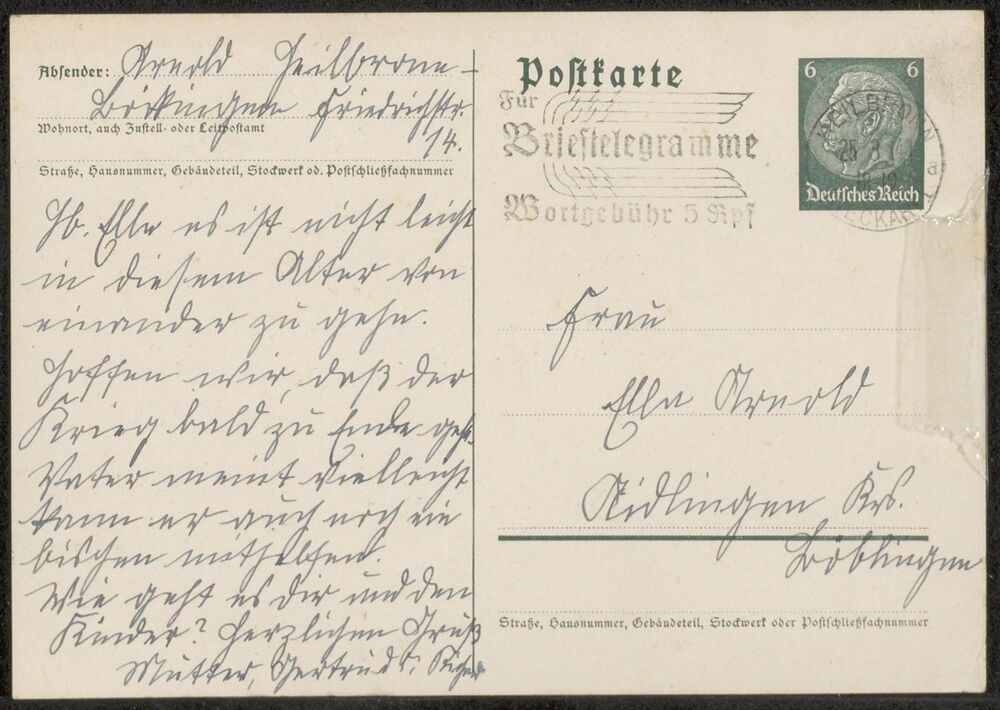 Absender: Arnold Heilbronn-
Böckingen Friedrichstr.
Wohnort, auch Zustell- oder Leitpostamt
14.
Straße, Hausnummer, Gebäudeteil, Stockwerk od. Postschließfachnummer
Lb. Ella es ist nicht leicht
in diesem Alter von
einander zu gehn.
Hoffen wir, daß der
Krieg bald zu Ende geht.
Vater meint vielleicht
kann er auch noch ein
bischen mithelfen.
Wie geht es Dir und den
Kinder? Herzlichen Gruß
Mutter, Gertrud u.
Postkarte
Für
Brieftelegramme
Wortgebühr 5 Rpf
6 6
Deutsches Reich
HEILBRONN
25 3
a
NECKAR
Frau
Ella Arnold
Aidlingen Krs.
Böblingen
Straße, Hausnummer, Gebäudeteil, Stockwerk oder Postschließfachnummer